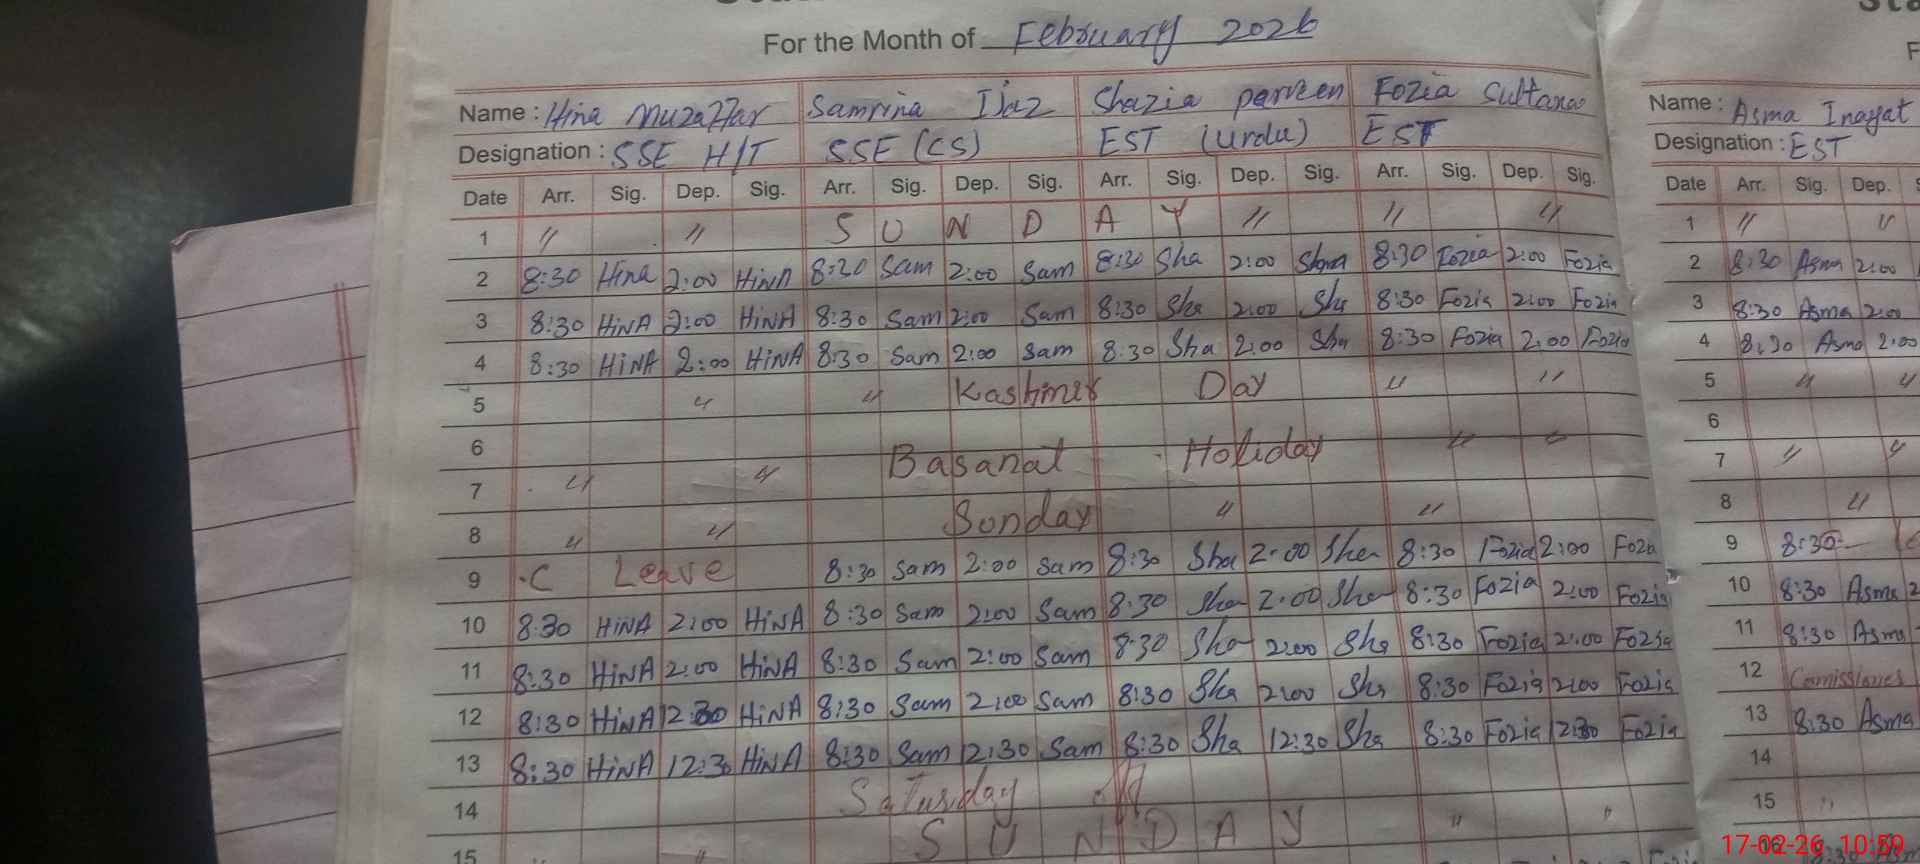 For the Month of February 2026
Name : Hina Muzaffar Samrina Ijaz Shazia parveen Fozia Sultana
Designation : SSE H/T SSE (CS) EST (Urdu) EST
Date Arr. Sig. Dep. Sig. Arr. Sig. Dep. Sig. Arr. Sig. Dep. Sig. Arr. Sig. Dep. Sig.
1 " " S U N D A Y " " "
2 8:30 Hina 2:00 HinA 8:30 Sam 2:00 Sam 8:30 Sha 2:00 8:30 Fozia 2:00 Fozia
3 8:30 HiNA 2:00 HiNA 8:30 Sam 2:00 Sam 8:30 Sha 2:00 Sha 8:30 Fozia 2:00 Fozia
4 8:30 HiNA 2:00 HiNA 8:30 Sam 2:00 Sam 8:30 Sha 2:00 Sha 8:30 Fozia 2:00 Fozia
5 " " Kashmer Day " "
6 Basanat Holiday " "
7 " "
8 " " Sunday " "
9 C Leave 8:30 Sam 2:00 Sam 8:30 Sha 2:00 Sha 8:30 Fozia 2:00 Fozia
10 8:30 HiNA 2:00 HiNA 8:30 Sam 2:00 Sam 8:30 Sha 2:00 Sha 8:30 Fozia 2:00 Fozia
11 8:30 HiNA 2:00 HiNA 8:30 Sam 2:00 Sam 8:30 Sha 2:00 Sha 8:30 Fozia 2:00 Fozia
12 8:30 HiNA HiNA 8:30 Sam 2:00 Sam 8:30 Sha 2:00 Sha 8:30 Fozia 2:00 Fozia
13 8:30 HiNA 12:30 HiNA 8:30 Sam 12:30 Sam 8:30 Sha 12:30 Sha 8:30 Fozia 12:30 Fozia
14 Saturday
15 " " S U N D A Y " "
Name : Asma Inayat
Designation : EST
Date Arr. Sig. Dep.
1 " "
2 8:30 Asma 2:00
3 8:30 Asma 2:00
4 8:30 Asma 2:00
5 " "
6
7 " "
8 "
9 8:30
10 8:30 Asma 2
11 8:30 Asma
12 Comissiones
13 8:30 Asma
14
15 "
16
17-02-26 10:59